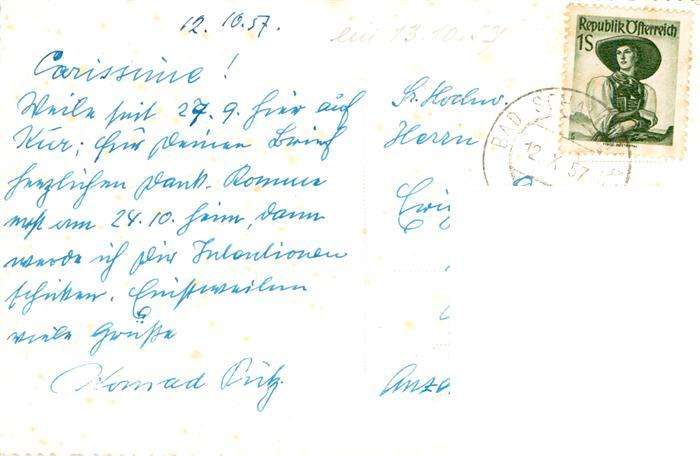 12. 10. 57.
ein 13. 10. 57
Carissime!
Weile seit 27. 9. hier auf
Kur; für Deinen Brief
herzlichen Dank. Komme
erst am 24. 10. heim, dann
werde ich Dir Intentionen
schicken. Einstweilen
viele Grüße
Konrad
Sr. Hochw.
Herrn
Republik Österreich
1S
BAD SCHA
12. X. 57